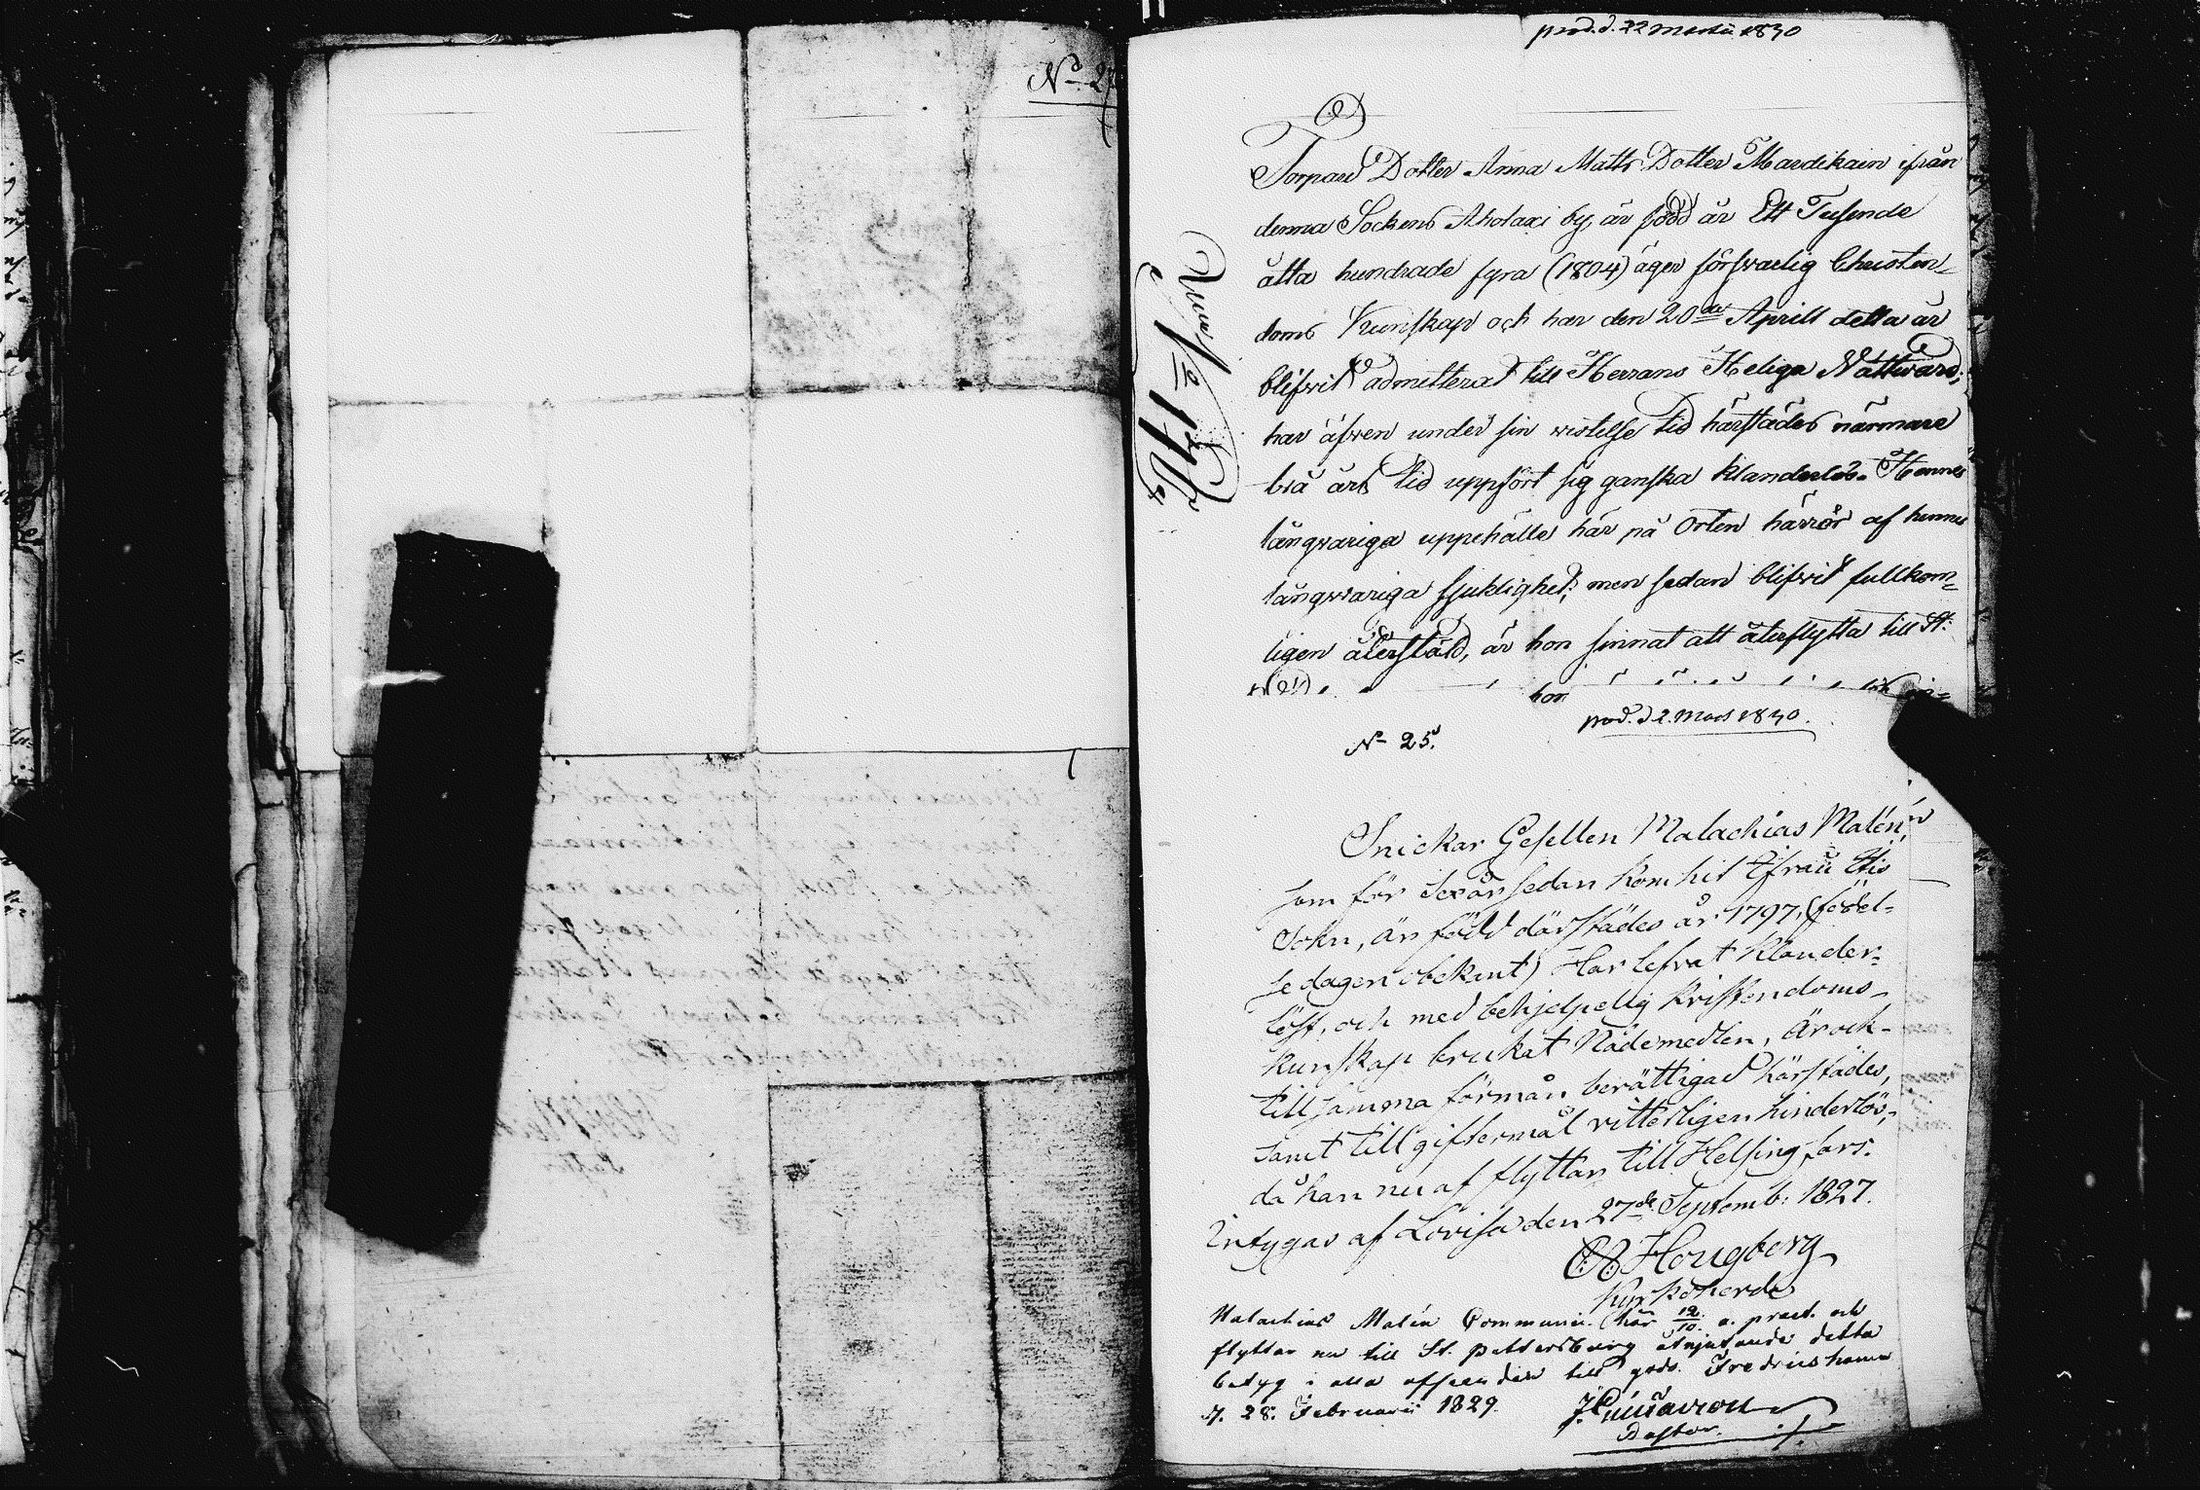 prod. d. 22 Martii 1830
Torpare Dotter Anna Matts Dotter Mardikain ifrån
denna Sockens Aholaxi by, är född år Ett Tusende
åtta hundrade fyra (1804) äger försvarlig Christen-
doms Kunskap och har den 20de Aprill detta år
blifvit admitterad till Herrans Heliga Nattward;
har äfwen under sin wistelse tid härstädes närmare
två års tid uppfört sig ganska klanderlös. Hennes
långvariga uppehälle här på Orten härrör af hennes
långvariga sjuklighet; men sedan blifvit fullkom-
ligen återstäld, är hon sinnat att återflytta till St:
hon
No 25.
prod. d 2. Mars 1830.
Snickar Gesellen Malachias Malén,
som för Sex år sedan kom hit ifrån
Sokn, är född därstädes år 1797, (födel-
se dagen obekant) Har lefvat klander-
löst, och med behjelpelig kristendoms-
kunskap brukat Nådemedlen, Är ock-
till samma förmån berättigad härstädes,
samt till giftermål vitterligen hinderlös,
då han nu af flyttar till Helsingfors.
Intygas af Lovisa den 27de Septemb: 1827.
Hougberg
Kyrkoherde
Malachias Malén Communic. här 19/10 a. praet. och
flyttar nu till St. Pettersburg åtnjutande detta
betyg i alla afseenden till godo. Fredricshamn
d. 28. Februarii 1829.
Pastor.